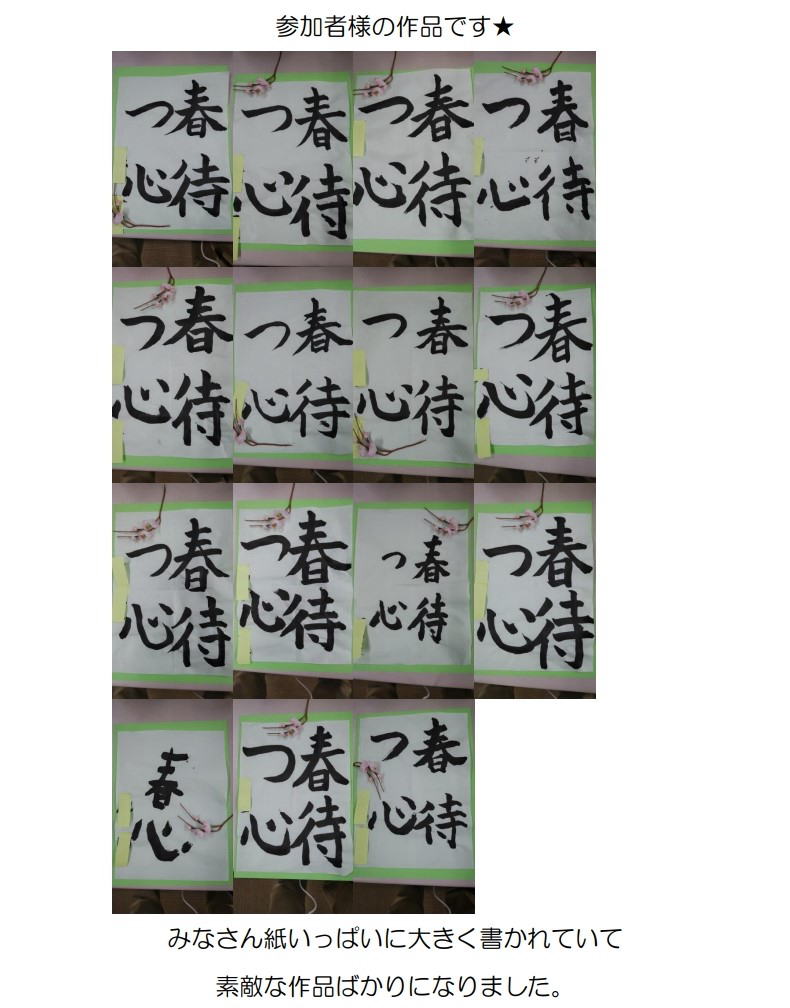 参加者様の作品です★
春待
つ心
春待
つ心
春待
つ心
春待
つ心
春待
つ心
春待
つ心
春待
つ心
春待
つ心
春待
つ心
春待
つ心
春待
つ心
春待
つ心
春心
春待
つ心
春待
つ心
みなさん紙いっぱいに大きく書かれていて
素敵な作品ばかりになりました。